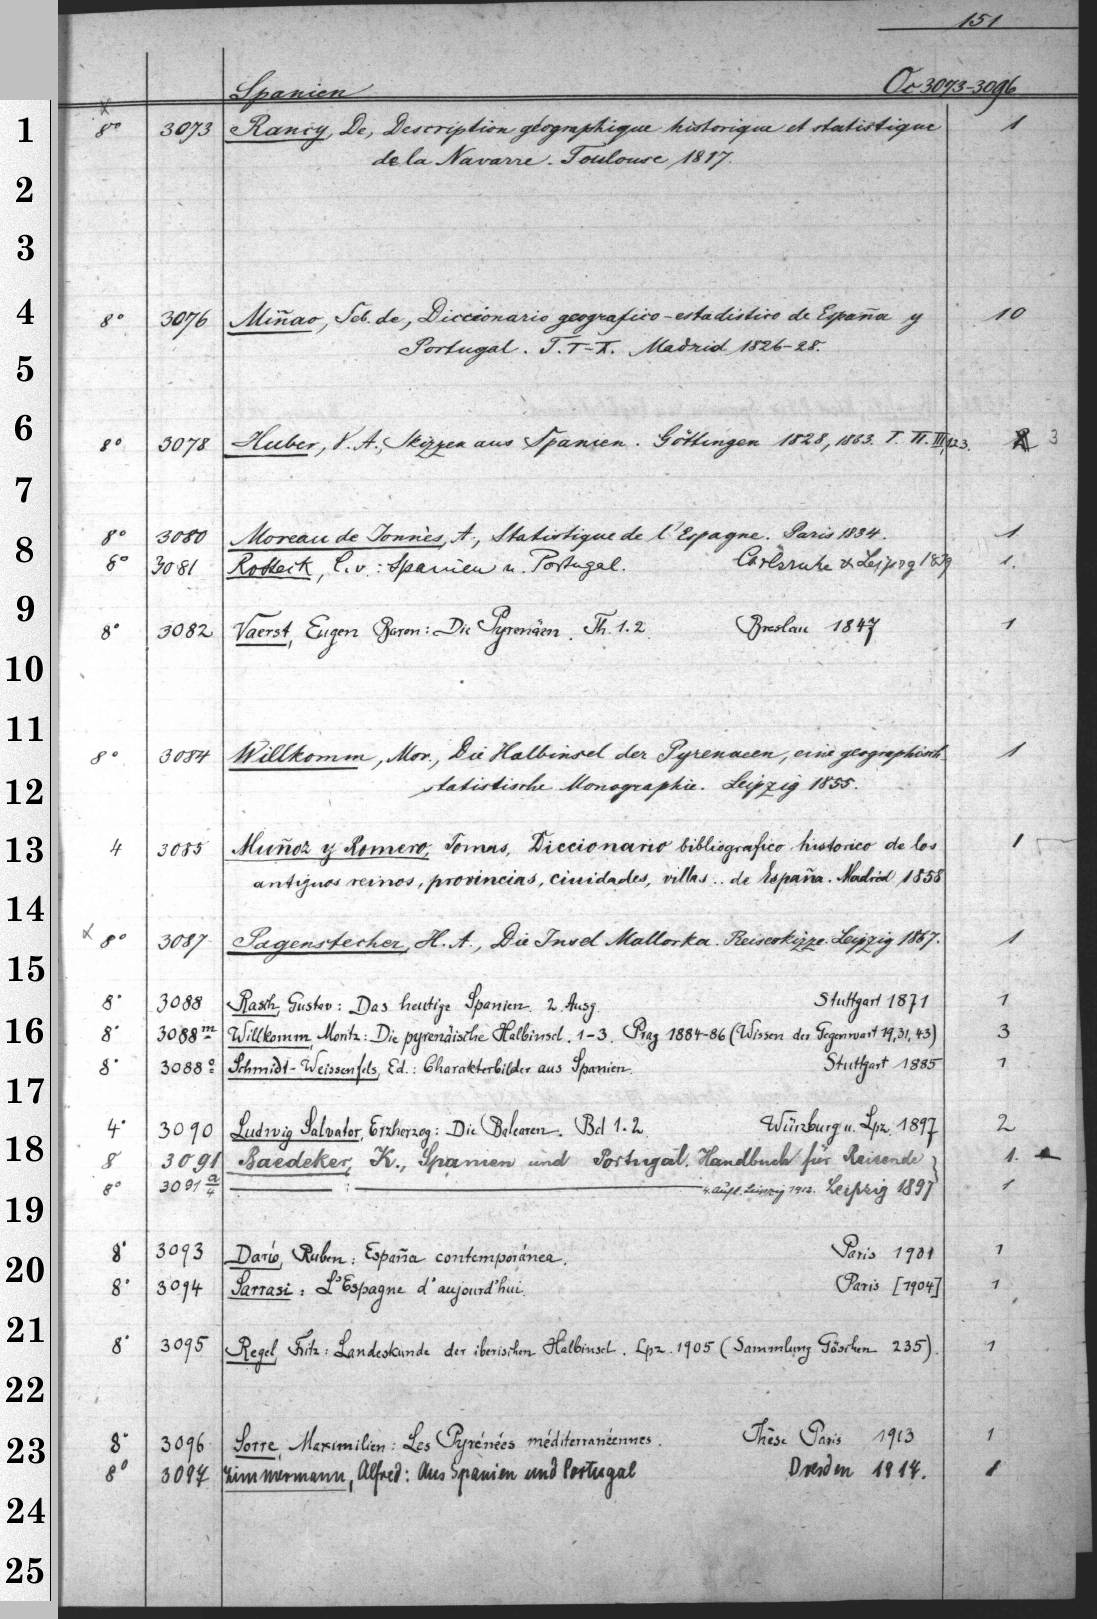 151
Spanien Oc 3073-3096
1 8° 3073 Rancy, De, Description géographique historique et statistique 1
de la Navarre. Toulouse 1817.
2
3
4 8° 3076 Miñao, Seb. de, Diccionario geografico-estadistico de España y 10
Portugal. T. I-X. Madrid 1826-28.
5
6 8° 3078 Huber, V. A., Skizzen aus Spanien. Göttingen 1828, 1833. T. I. II. III, 1.2.3. 3
7
8 8° 3080 Moreau de Jonnès, A., Statistique de l'Espagne. Paris 1834. 1
8° 3081 Rotteck, C. v.: Spanien u. Portugal. Carlsruhe & Leipzig 1839 1.
9 8° 3082 Vaerst, Eugen Baron: Die Pyrenäen. Th. 1.2. Breslau 1847 1
10
11
8° 3084 Willkomm, Mor., Die Halbinsel der Pyrenaeen, eine geographisch 1
12 statistische Monographie. Leipzig 1855.
13 4 3085 Muñoz y Romero, Tomas, Diccionario bibliografico historico de los 1
antiguos reinos, provincias, ciuidades, villas .. de España. Madrid 1858
14
x 8° 3087 Pagenstecher, H. A., Die Insel Mallorka. Reiseskizze. Leipzig 1867. 1
15
8° 3088 Rasch, Gustav: Das heutige Spanien. 2. Ausg. Stuttgart 1871 1
16 8° 3088m Willkomm, Moritz: Die pyrenäische Halbinsel. 1-3. Prag 1884-86 (Wissen der Gegenwart 19, 31, 43) 3
8° 3088o Schmidt-Weissenfels, Ed.: Charakterbilder aus Spanien. Stuttgart 1885 1
17
4° 3090 Ludwig Salvator, Erzherzog: Die Balearen. Bd 1.2. Würzburg u. Lpz. 1897 2
18 8 3091 Baedeker, K., Spanien und Portugal. Handbuch für Reisende 1.
8° 3091 a/4 — : — 4. Aufl. Leipzig 1912. Leipzig 1897 1
19
8° 3093 Darío, Ruben: España contemporánea. Paris 1901 1
20 8° 3094 Sarrasi: L'Espagne d'aujourd'hui. Paris [1904] 1
21 8° 3095 Regel, Fritz: Landeskunde der iberischen Halbinsel. Lpz. 1905 (Sammlung Göschen 235). 1
22
23 8° 3096 Sorre, Maximilien: Les Pyrénées méditerranéennes. Thèse Paris 1913 1
8° 3097 Zimmermann, Alfred: Aus Spanien und Portugal Dresden 1917. 1
24
25